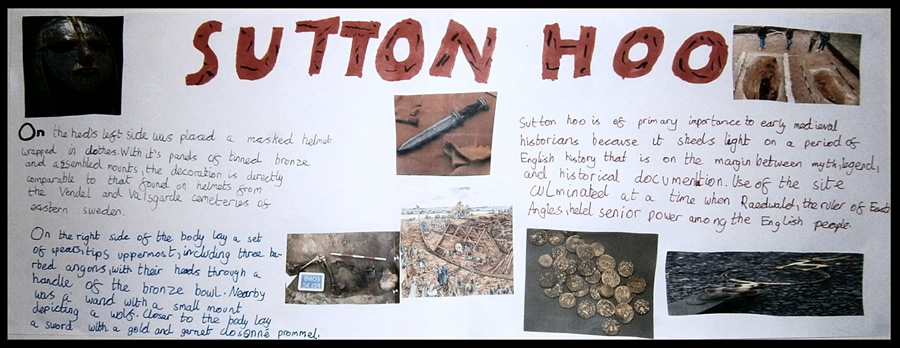 SUTTON HOO
On the heads left side was placed a masked helmet
wrapped in clothes. With it's panels of tinned bronze
and assembled mounts, the decoration is directly
comparable to that found on helmets from
the Vendel and Valsgarde cemeteries of
eastern sweden.
On the right side of the body lay a set
of spears, tips uppermost, including three ba-
rbed angons, with their heads through a
handle of the bronze bowl. Nearby
was a wand with a small mount
depicting a wolf. Closer to the body lay
a sword with a gold and garnet cloisonné prommel.
Sutton hoo is of primary importance to early medieval
historians because it sheds light on a period of
English history that is on the margin between myth, legend,
and historical documention. Use of the site
culminated at a time when Raedwald, the ruler of East
Angles, held senior power among the English people.